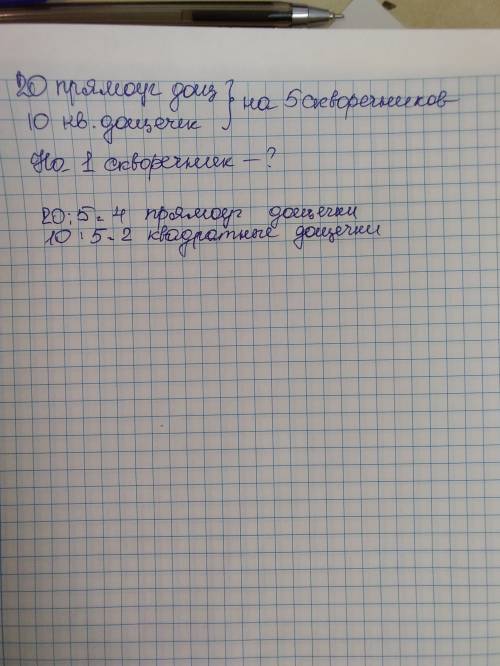 20 прямоуг дощ } на 5 скворечников
10 кв. дощечек
На 1 скворечник – ?
20:5=4 прямоуг дощечки
10:5=2 квадратные дощечки